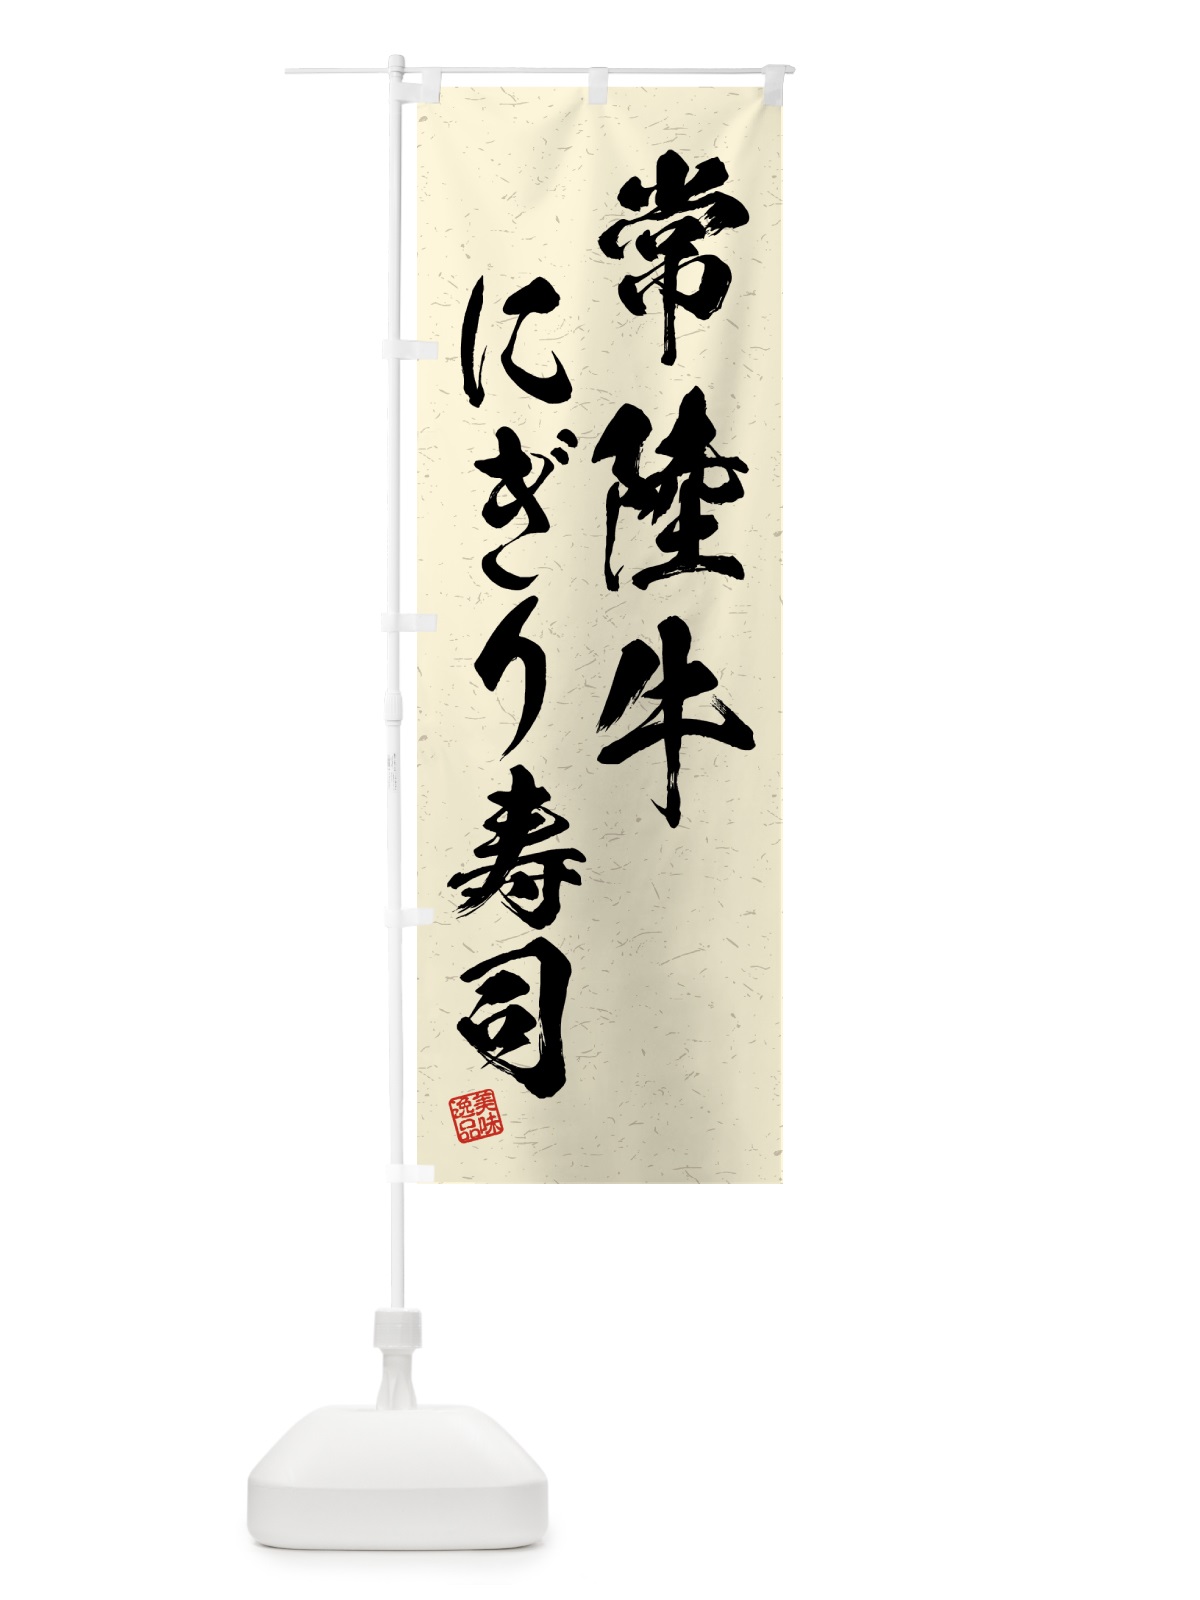 常陸牛
にぎり寿司
美味
逸品